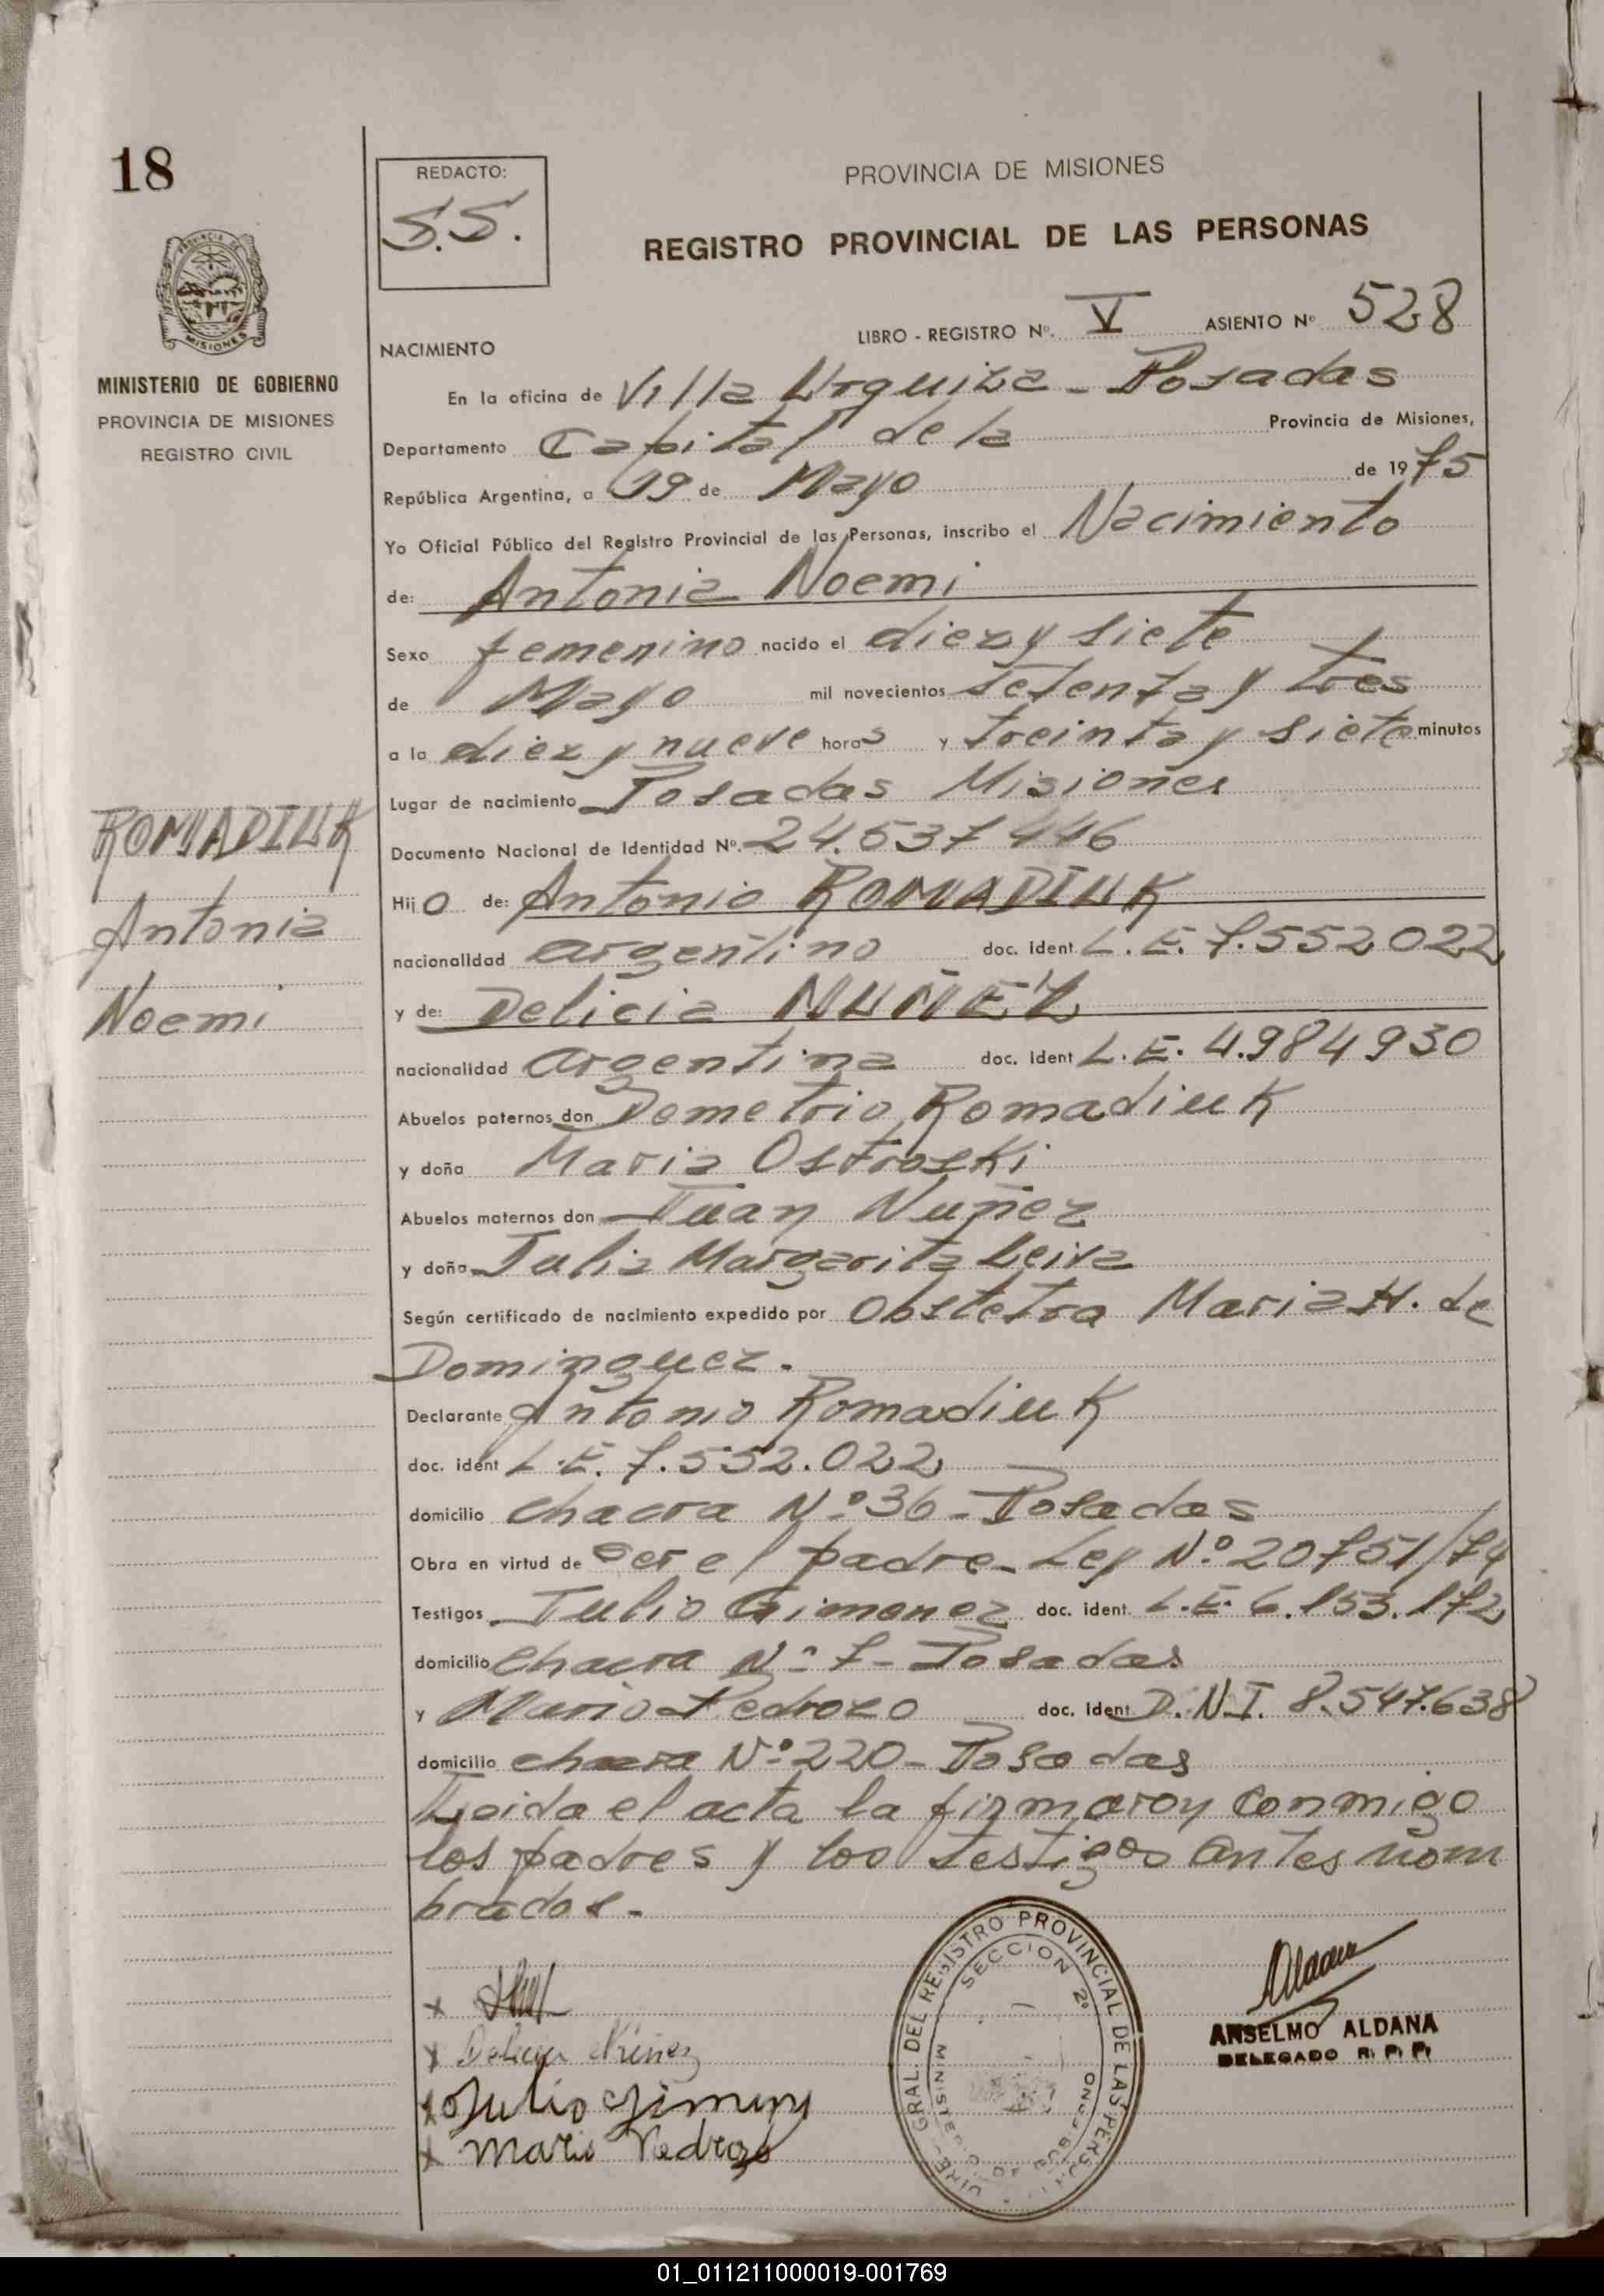 18
REDACTO:
S.S.
PROVINCIA DE MISIONES
REGISTRO PROVINCIAL DE LAS PERSONAS
PROVINCIA DE
MISIONES
MINISTERIO DE GOBIERNO
PROVINCIA DE MISIONES
REGISTRO CIVIL
LIBRO - REGISTRO Nº. V ASIENTO Nº 528
NACIMIENTO
En la oficina de Villa Urquiza - Posadas
Departamento Capital de la Provincia de Misiones,
República Argentina, a 19 de Mayo de 1975
Yo Oficial Público del Registro Provincial de las Personas, inscribo el Nacimiento
de: Antonia Noemi
Sexo femenino nacido el diez y siete
de Mayo mil novecientos setenta y tres
a la diez y nueve horas y treinta y siete minutos
Lugar de nacimiento Posadas Misiones
Documento Nacional de Identidad Nº. 24.537 446
ROMADIUK
Antonia
Noemi
Hijo de: Antonio ROMADIUK
nacionalidad argentino doc. ident. L.E. 7.552022
y de: Delicia NUÑEZ
nacionalidad argentina doc. ident L.E. 4.984930
Abuelos paternos don Demetrio Romadiuk
y doña Maria Ostroski
Abuelos maternos don Juan Nuñez
y doña Julia Margarita Leiva
Según certificado de nacimiento expedido por Obstetra Maria H. de
Dominguez.
Declarante Antonio Romadiuk
doc. ident L.E. 7.552.022
domicilio chacra Nº 36 - Posadas
Obra en virtud de ser el padre - Ley Nº 20751/74
Testigos Julio Gimenez doc. ident. L.E. 6.153.172
domicilio chacra Nº 7 - Posadas
y Mario Pedrozo doc. ident D.N.I. 8.547.638
domicilio chacra Nº 220 - Posadas
Leida el acta la firmaron conmigo
los padres y los testigos antes nom
brados -
x
x Delicia Nuñez
x Julio Jimenez
x Mario Pedrozo
GRAL. DEL REGISTRO PROVINCIAL DE LAS PERSON
SECCION 2º
MINISTERIO DE GOBIERNO
Aldana
ANSELMO ALDANA
DELEGADO R. P. P.
01_011211000019-001769